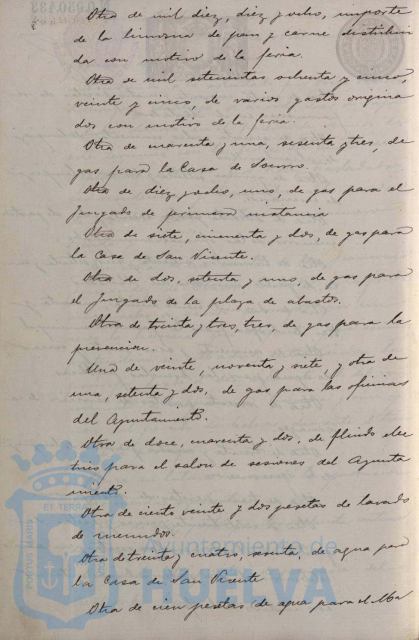 Otra de mil diez, diez y ocho, importe
de la limosna de pan y carne distribui
da con motivo de la feria.
Otra de mil setecientas ochenta y cinco,
veinte y cinco, de varios gastos origina
dos con motivo de la feria.
Otra de cuarenta y una, sesenta y tres, de
gas para la Casa de Socorro
Otra de diez y ocho, uno, de gas para el
Juzgado de primera instancia
Otra de siete, cincuenta y dos, de gas para
la Casa de San Vicente.
Otra de dos, setenta y uno, de gas para
el Juzgado de la plaza de abastos.
Otra de treinta y tres, tres, de gas para la
prevencion.
Una de veinte, noventa y siete, y otra de
una, setenta y dos, de gas para las oficinas
del Ayuntamiento.
Otra de doce, cuarenta y dos, de fluido elec
trico para el salon de sesiones del Ayunta
miento.
Otra de ciento veinte y dos pesetas de lavado
de menudos.
Otra de treinta y cuatro, sesenta, de agua para
la Casa de San Vicente
Otra de cien pesetas de agua para el Ma
ET TERRAE
PORTUS MARIS
Ayuntamiento de
HUELVA